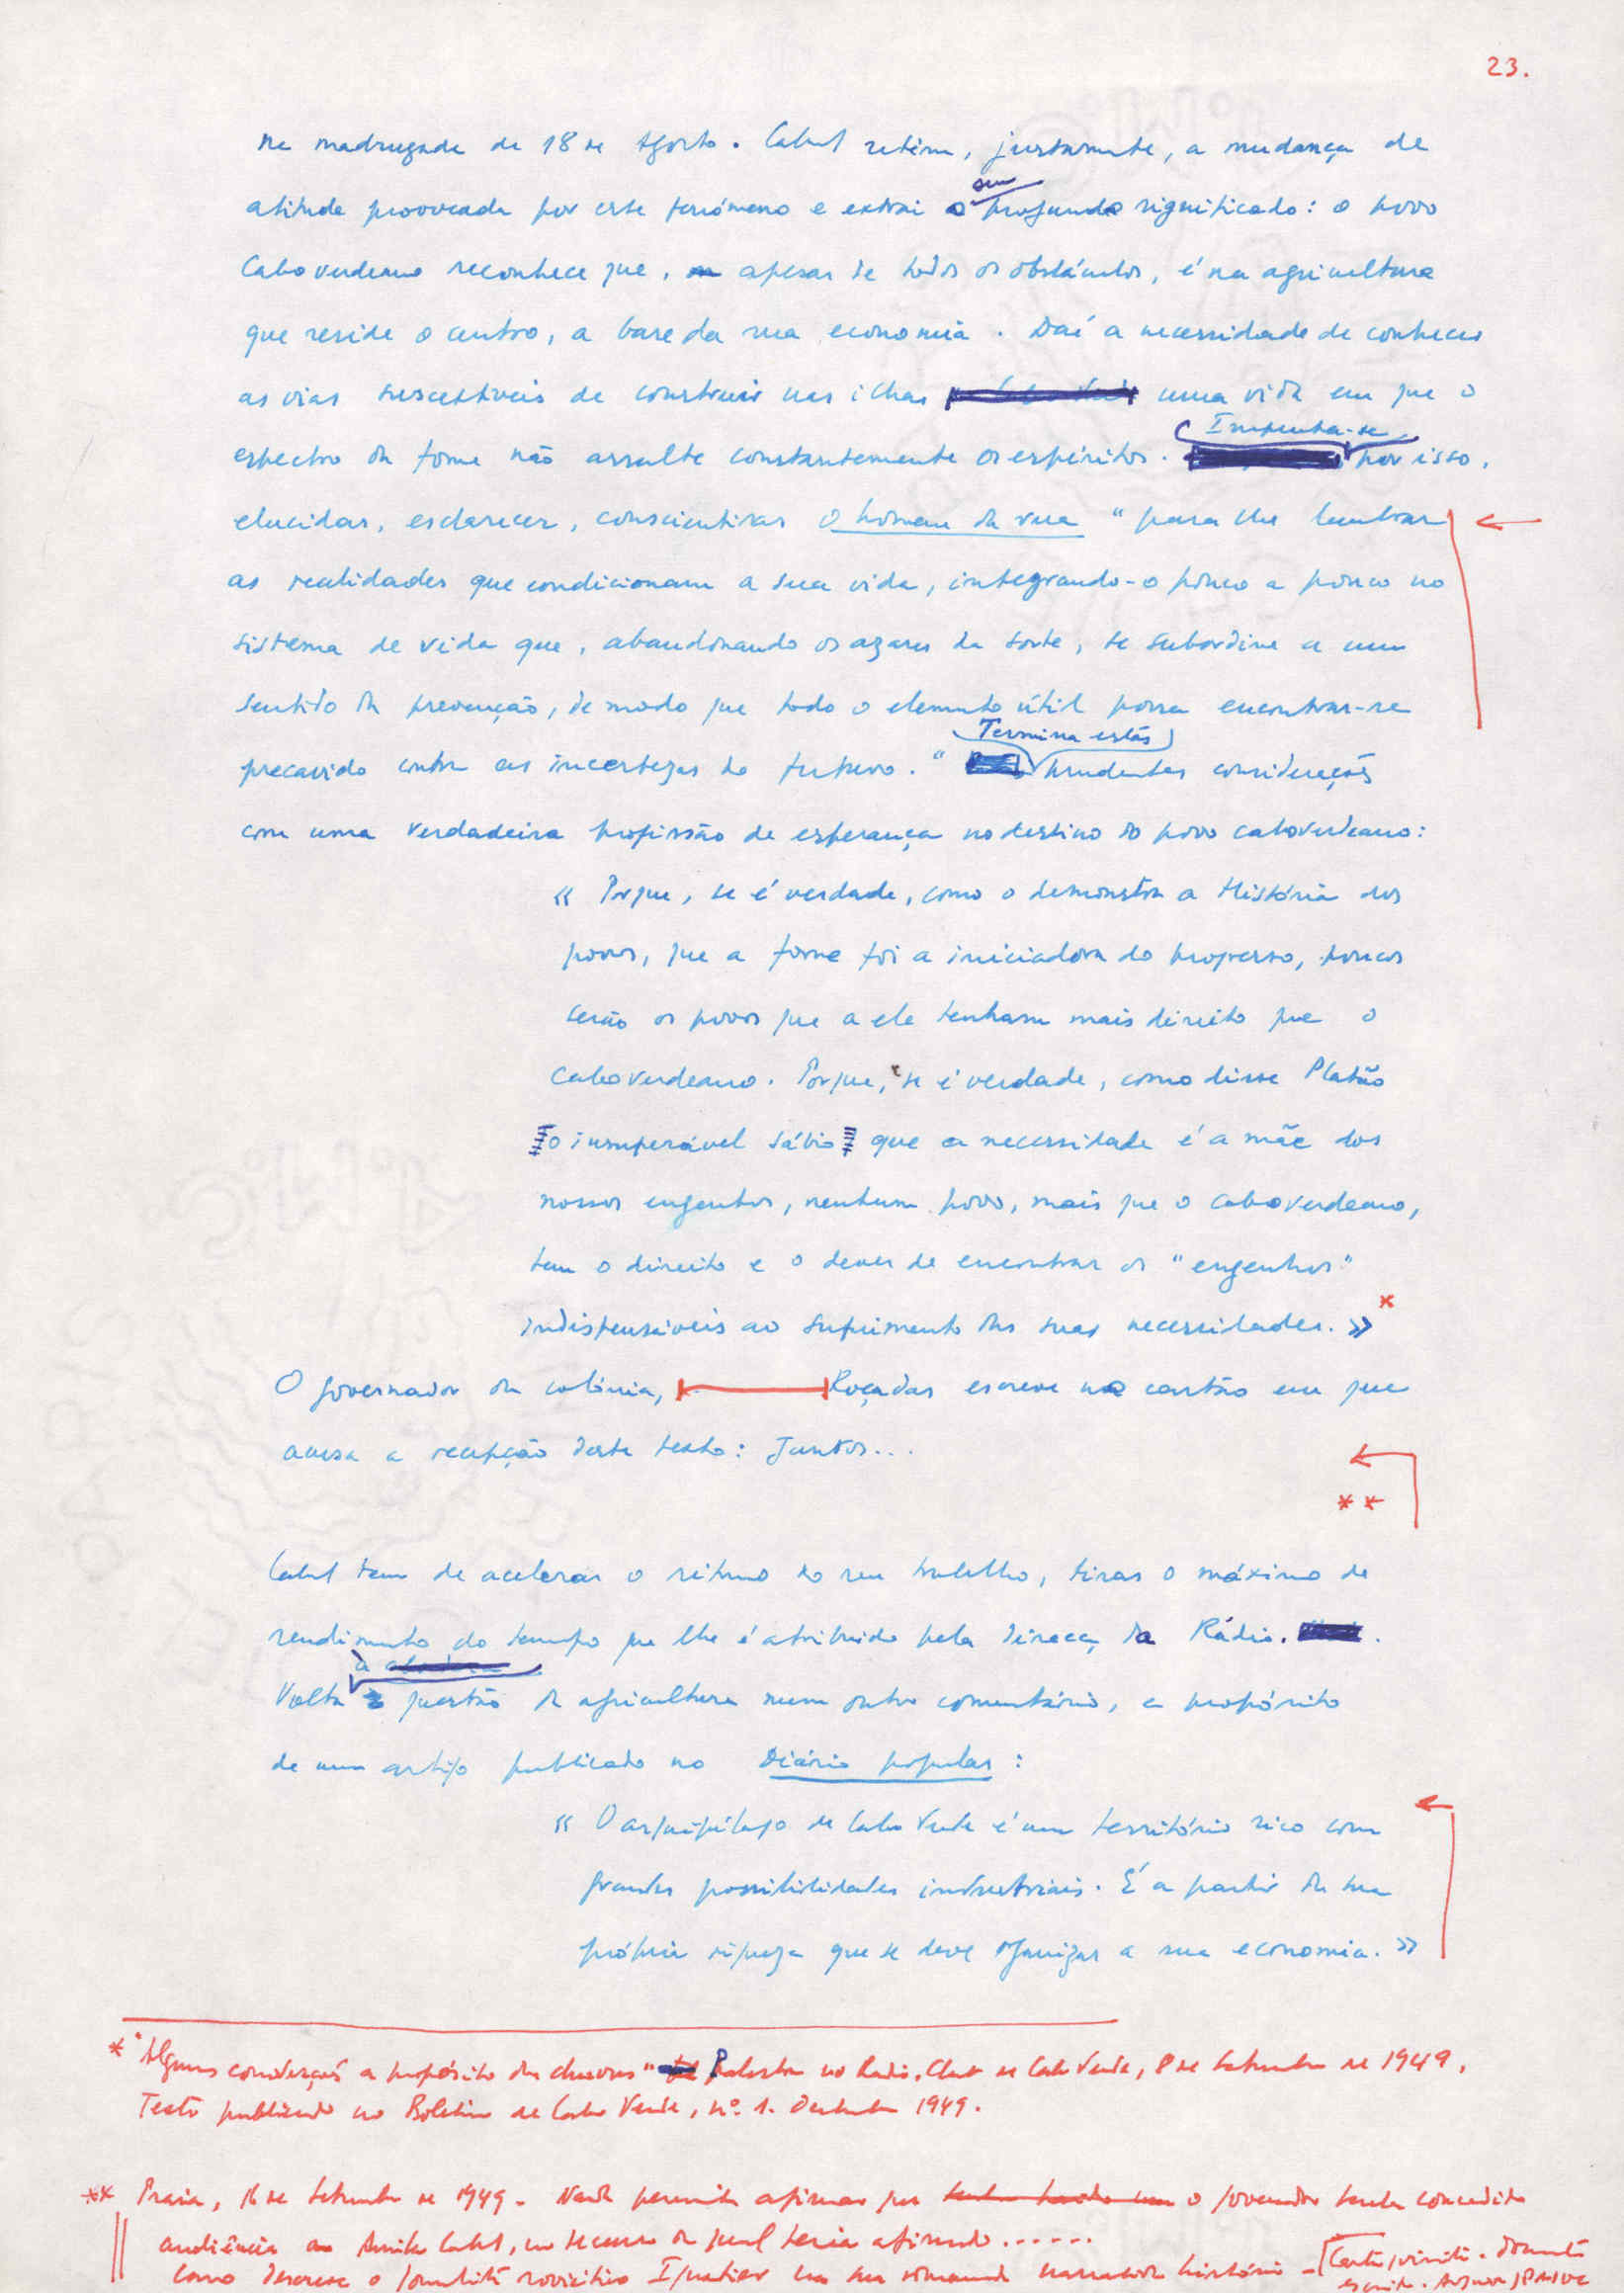 23.
na madrugada de 18 de Agosto. Cabral retém, justamente, a mudança de
atitude provocada por este fenómeno e extrai o seu profundo significado: o povo
Caboverdeano reconhece que, apesar de todos os obstáculos, é na agricultura
que reside o centro, a base da sua economia. Daí a necessidade de conhecer
as vias susceptíveis de construir nas ilhas uma vida em que o
espectro da fome não assalte constantemente os espíritos. Impunha-se, por isso,
elucidar, esclarecer, consciencizar o homem da rua "para lhe lembrar
as realidades que condicionam a sua vida, integrando-o pouco a pouco no
sistema de vida que, abandonando os azares da sorte, se subordine a um
sentido da prevenção, de modo que todo o elemento útil possa encontrar-se
precavido contra as incertezas do futuro." Termina estas prudentes considerações
com uma verdadeira profissão de esperança no destino do povo caboverdeano:
« Porque, se é verdade, como o demonstra a História dos
povos, que a fome foi a iniciadora do progresso, poucos
serão os povos que a ele tenham mais direito que o
Caboverdeano. Porque, se é verdade, como disse Platão
o insuperável sábio que a necessidade é a mãe dos
nossos engenhos, nenhum povo, mais que o caboverdeano,
tem o direito e o dever de encontrar os "engenhos"
indispensáveis ao suprimento das suas necessidades. » *
O governador da colónia, Roçadas escreve no cartão em que
acusa a recepção deste texto: Juntos...
* *
Cabral tem de acelerar o ritmo do seu trabalho, tirar o máximo de
rendimento do tempo que lhe é atribuído pela direcç da Rádio.
Volta à questão da agricultura num outro comentário, a propósito
de um artigo publicado no Diário popular:
« O arquipélago de Cabo Verde é um território rico com
grandes possibilidades industriais. É a partir da sua
própria riqueza que se deve organizar a sua economia. »
* "Algumas considerações a propósito das chuvas" Palestra no Radio. Club de Cabo Verde, 8 de Setembro de 1949.
Texto publicado no Boletim de Cabo Verde, nº. 1. Outubro 1949.
** Praia, 16 de Setembro de 1949. Nada permite afirmar que o governador tenha concedido
audiência a Amílcar Cabral, no decurso da qual teria afirmado......
Como descreve o soviético Ignatiev na sua narração história